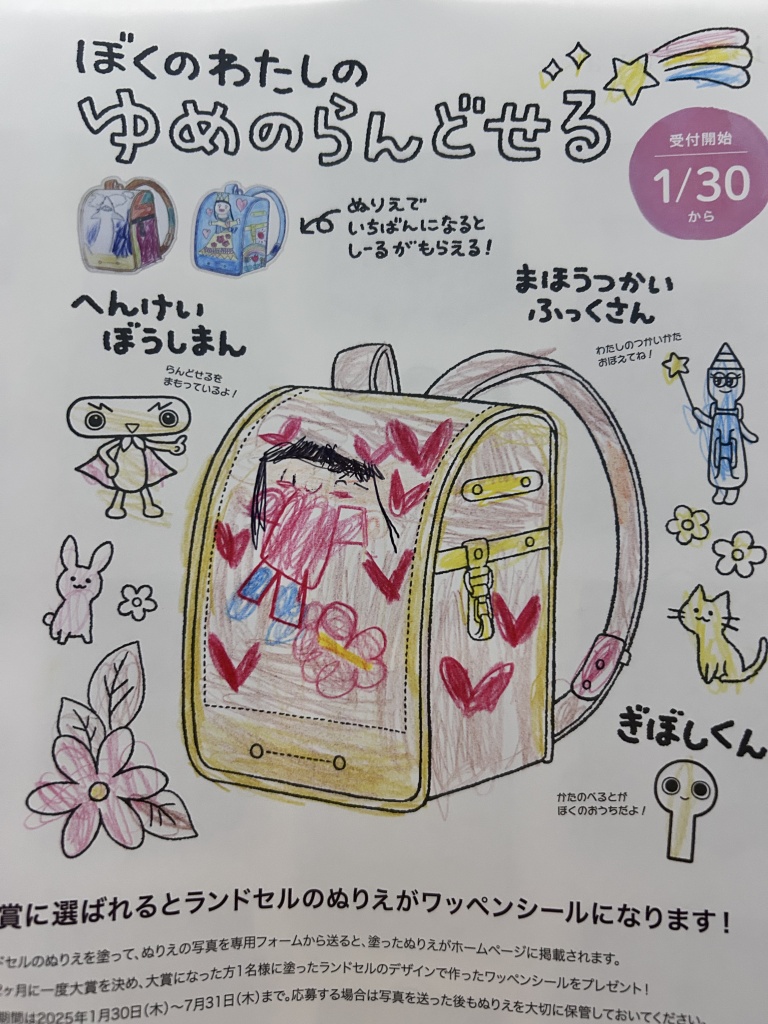 ぼくのわたしの
ゆめのらんどせる
受付開始
1/30
から
ぬりえで
いちばんになると
しーるがもらえる!
へんけい
ぼうしまん
らんどせるを
まもっているよ!
まほうつかい
ふっくさん
わたしのつかいかた
おぼえてね!
ぎぼしくん
かたのべるとが
ぼくのおうちだよ!
賞に選ばれるとランドセルのぬりえがワッペンシールになります!
ドセルのぬりえを塗って、ぬりえの写真を専用フォームから送ると、塗ったぬりえがホームページに掲載されます。
ヶ月に一度大賞を決め、大賞になった方1名様に塗ったランドセルのデザインで作ったワッペンシールをプレゼント!
期間は2025年1月30日(木)～7月31日(木)まで。応募する場合は写真を送った後もぬりえを大切に保管しておいてください。